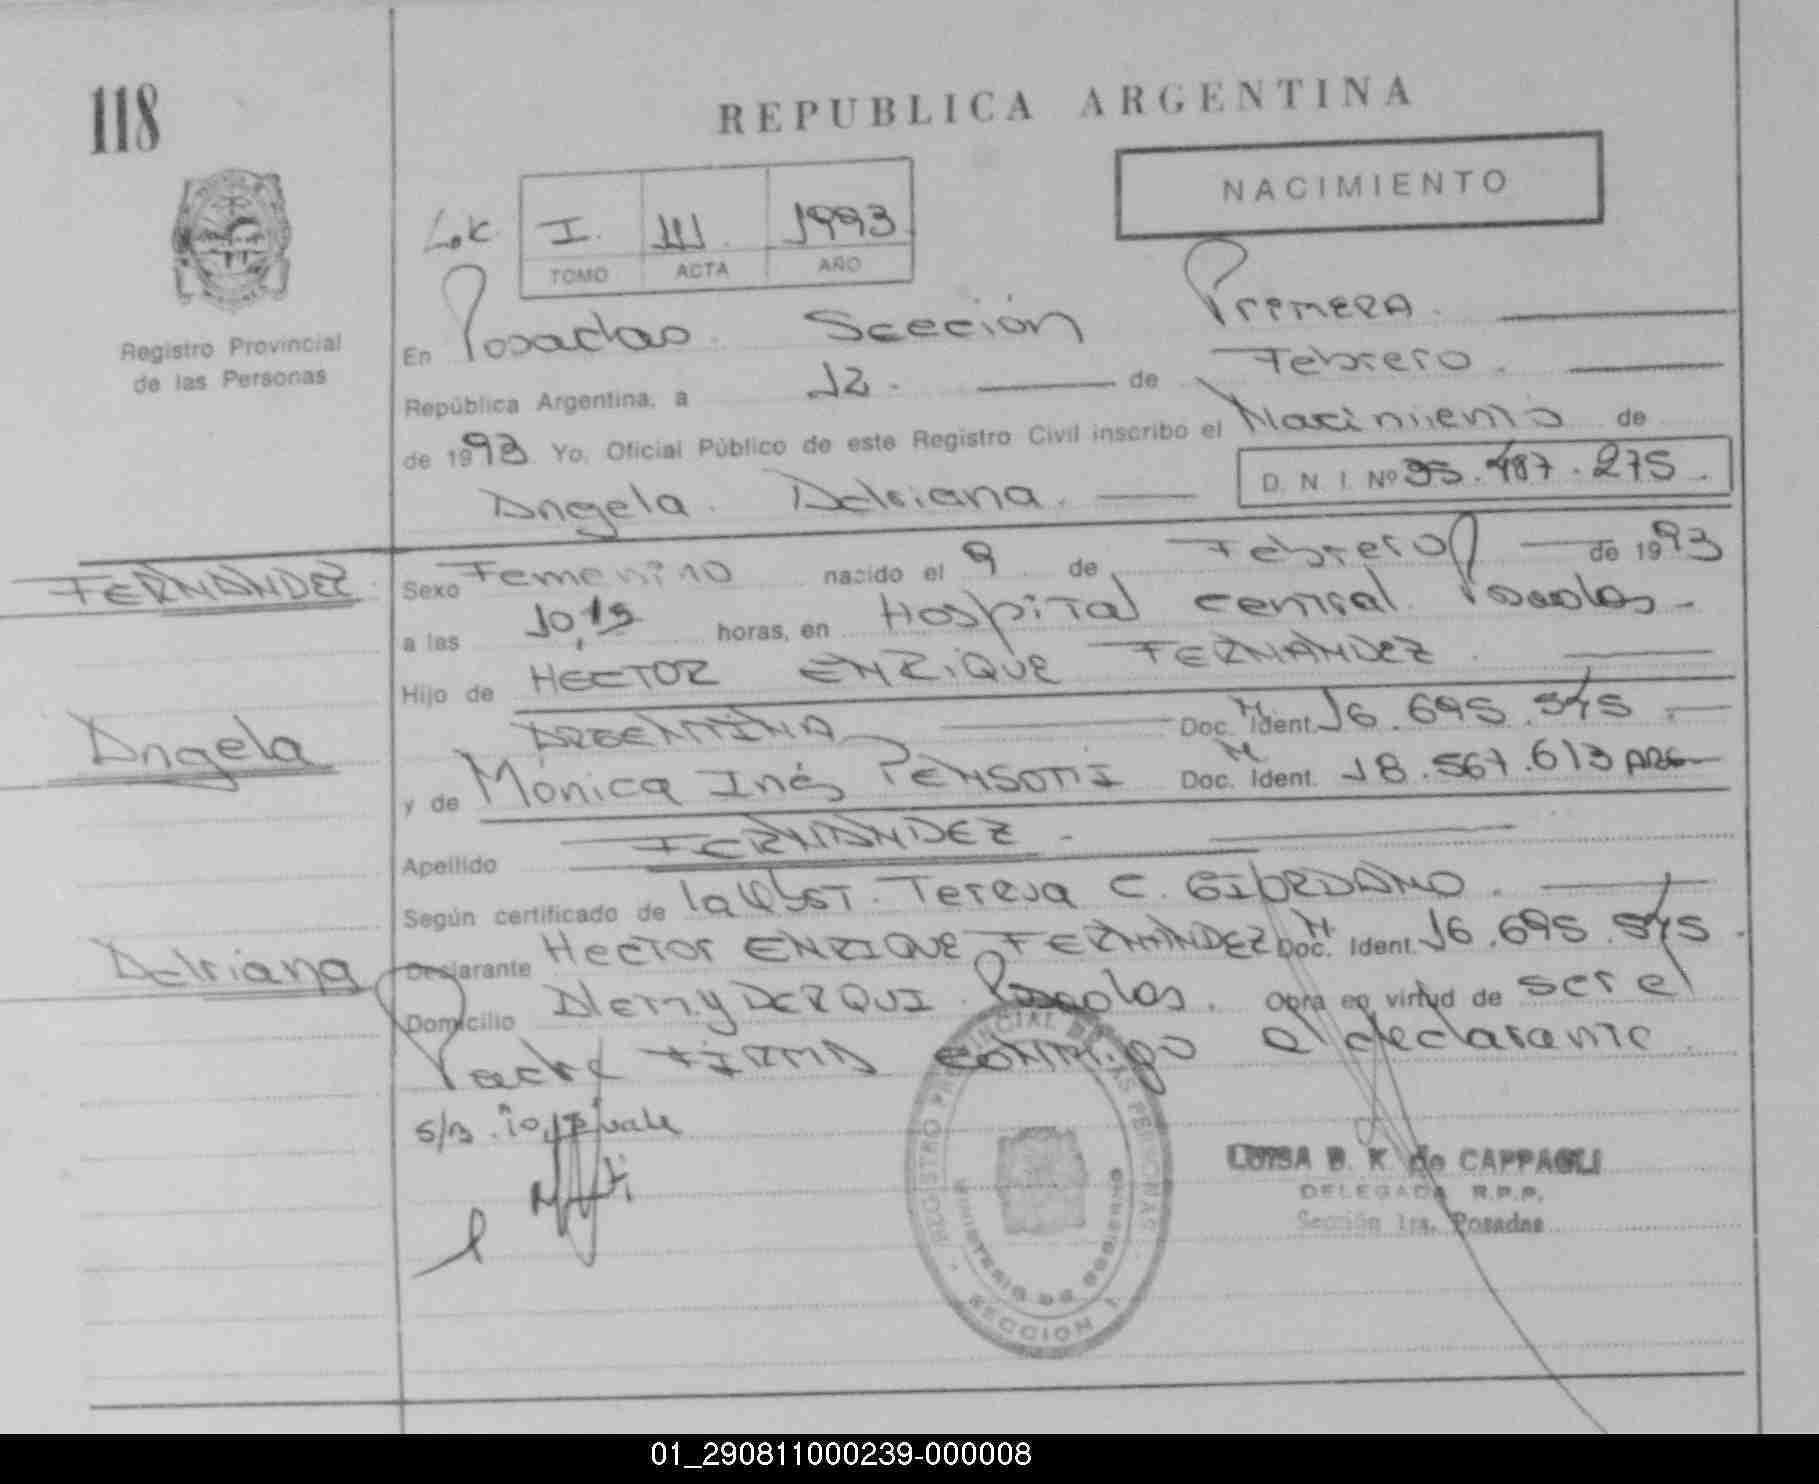 118
REPUBLICA ARGENTINA
NACIMIENTO
I. 111. 1993
TOMO ACTA AÑO
Registro Provincial
de las Personas
En Posadas. Sección Primera.
República Argentina, a 12. de Febrero.
de 1993 Yo, Oficial Público de este Registro Civil inscribo el Nacimiento de
Angela. Adriana. D. N. I. Nº 35. 487. 275.
FERNANDEZ
Sexo Femenino nacido el 9 de Febrero de 1993
a las 10,15 horas, en Hospital central Posadas-
Hijo de HECTOR ENRIQUE FERNANDEZ.
Angela
ARGENTINA Doc. M Ident. 16.695.545.
y de Mónica Inés PENSOTTI Doc. M Ident. 18.567.613 ARG
Apellido FERNANDEZ.
Según certificado de la Obst. Teresa C. GIORDANO.
Adriana
Declarante Hector ENRIQUE FERNANDEZ Doc. M Ident. 16.695.545.
Domicilio Alem y DERQUI. Posadas. Obra en virtud de ser el
Padre FIRMA conmigo el declarante.
s/b. vale
REGISTRO PROVINCIAL DE LAS PERSONAS
MINISTERIO DE GOBIERNO
SECCION 1
LUISA B. K. de CAPPAGLI
DELEGADA R.P.P.
Sección 1ra. Posadas
01_290811000239-000008